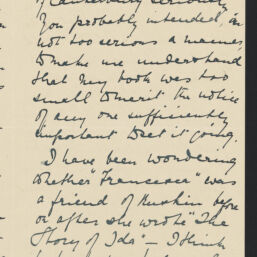 of Canterbury seriously.
You probably intended, in
not too serious a manner,
to make me understand
that my book was too
small to merit the notice
of any one sufficiently
important to set it going.
I have been wondering
whether "Francesca" was
a friend of Ruskin before
or after she wrote "The
Story of Ida" — I think